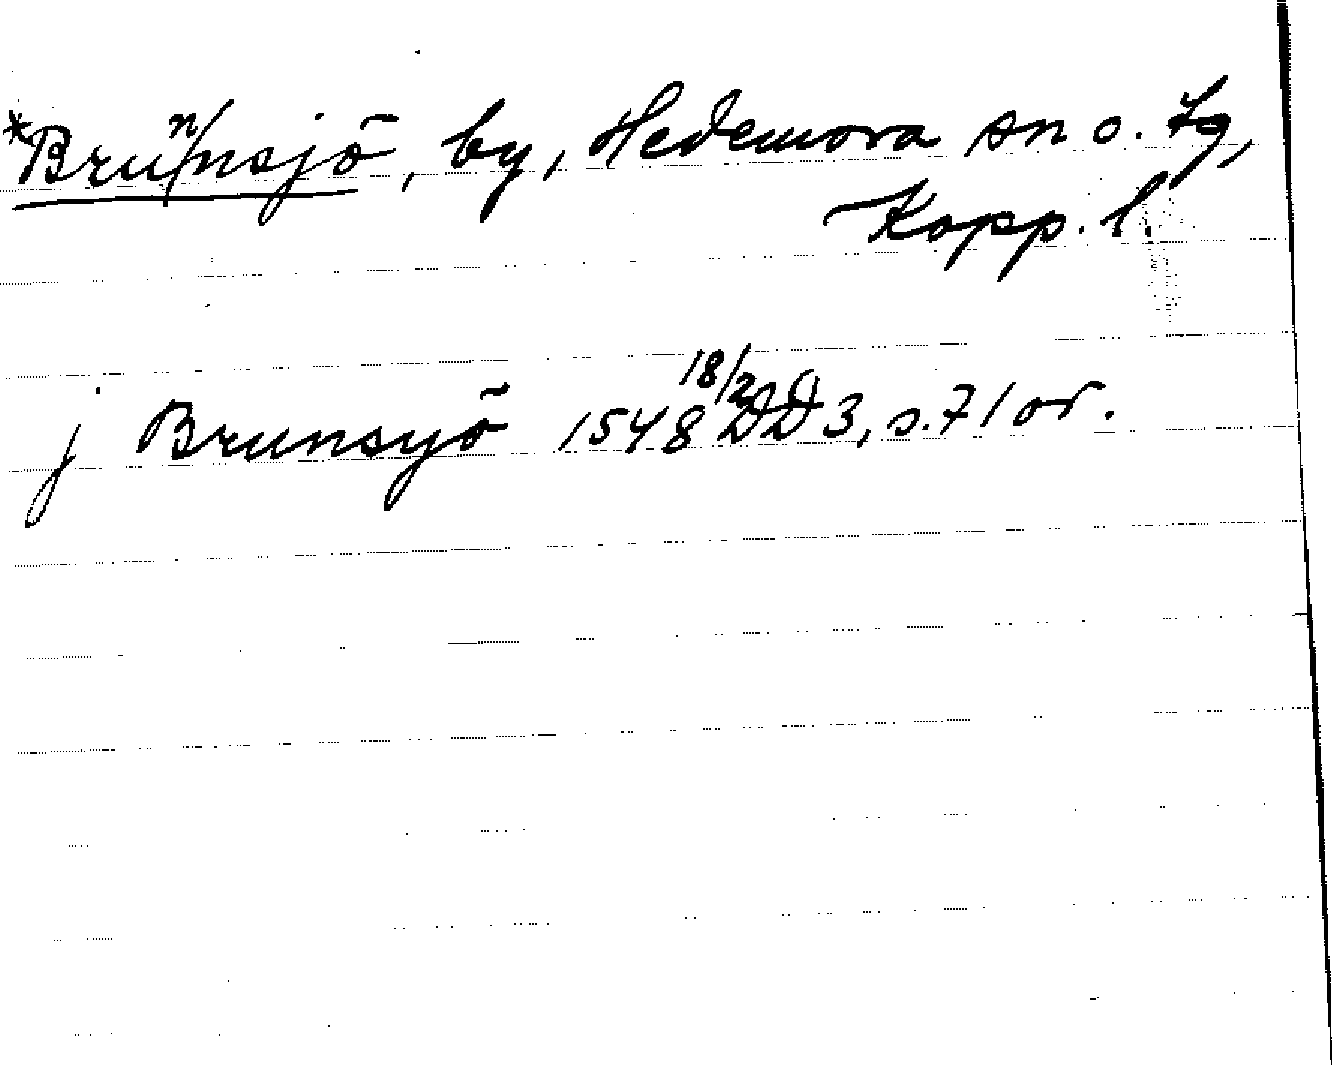 *Brunnsjö, by, Hedemora sn o. tg,
Kopp. l.
j Brunsyö 1548 18/2 DD 3, s. 71 or.